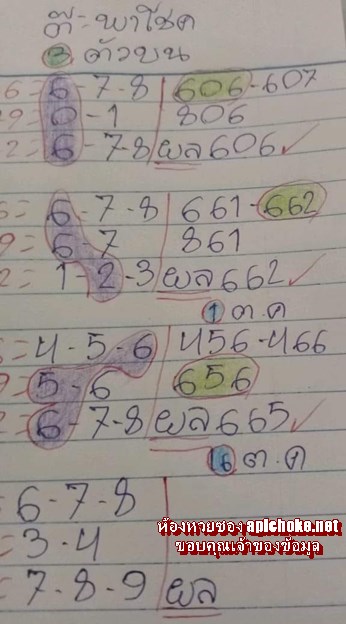 ตี๋-พาโชค
3 ตัวบน
6=6-7-8 606-607
9=0-1 806
2=6-7-8 ผล 606 ✓
6=6-7-8 661-662
9=6 7 861
2=1-2-3 ผล 662 ✓
1 ต.ค
6=4-5-6 456-466
9=5-6 656
2=6-7-8 ผล 665 ✓
16 ต.ค
=6-7-8
=3-4
=7-8-9 ผล
ห้องหวยซอง apichoke.net
ขอบคุณเจ้าของข้อมูล